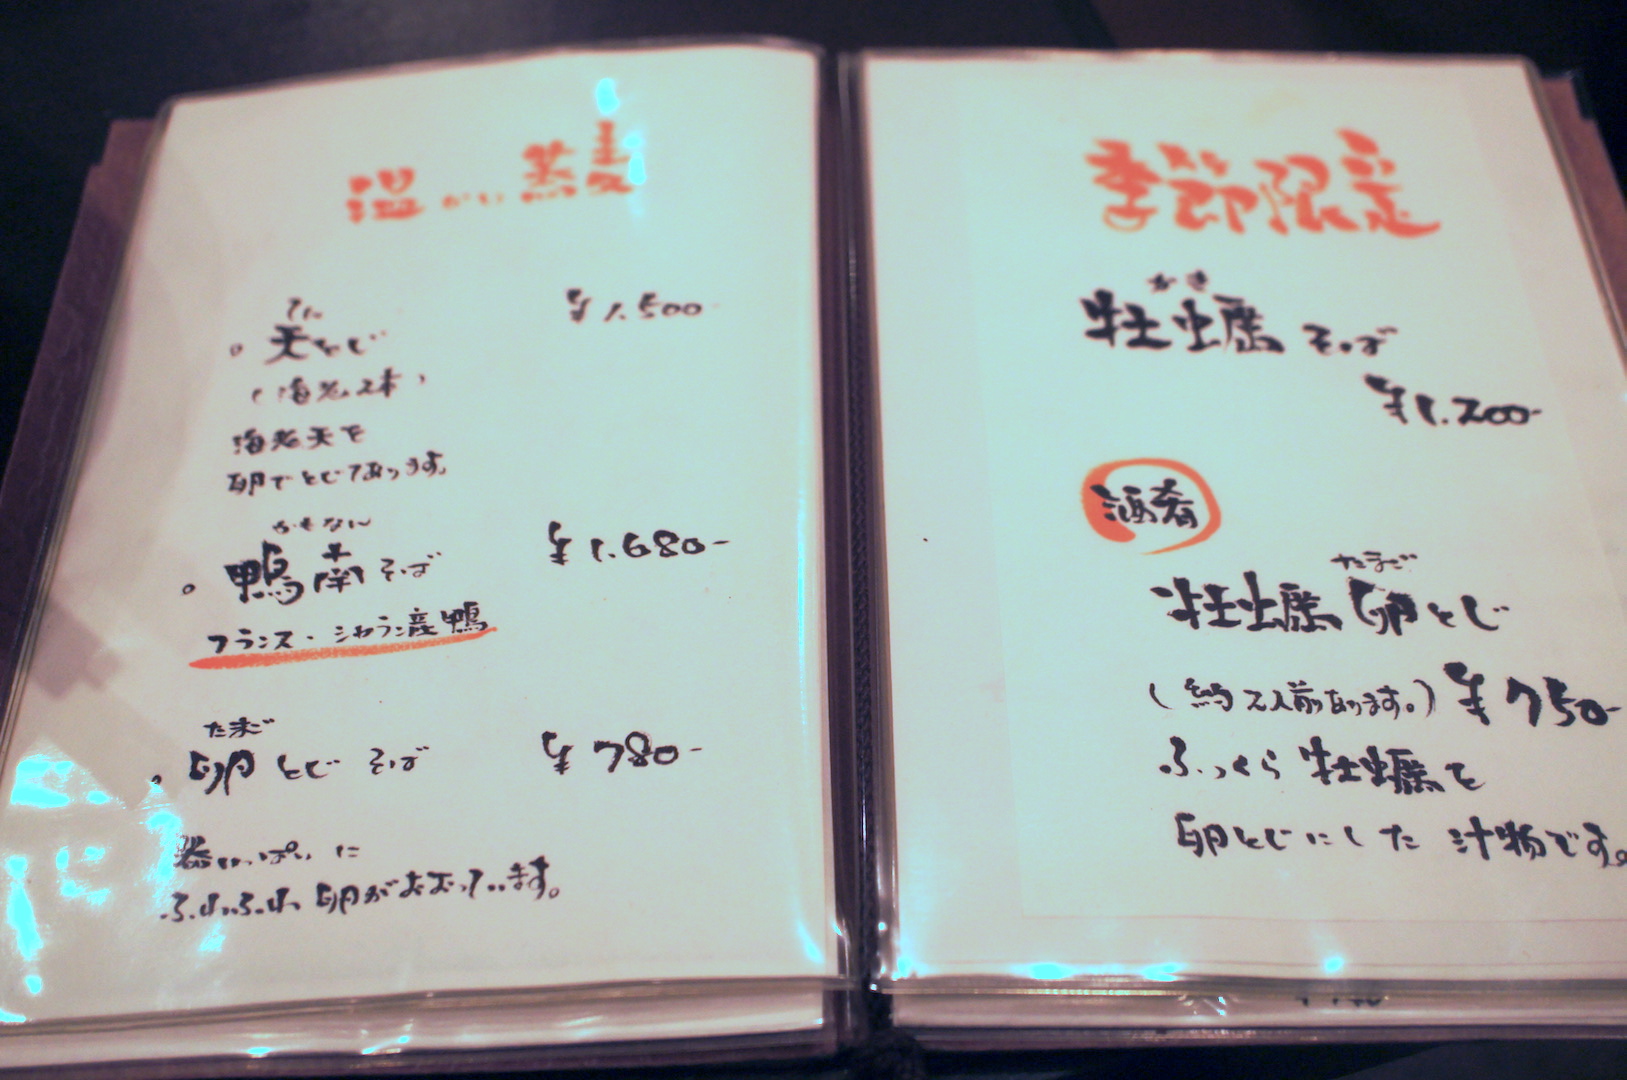 温かい蕎麦
てん
天とじ ¥1.500-
(海老2本)
海老天を
卵でとじてあります。
かもなん
鴨南そば ¥1.680-
フランス・シャラン産鴨
たまご
卵とじそば ¥780-
器いっぱいに
ふわふわ卵がおおっています。
季節限定
かき
牡蠣そば
¥1.200-
酒肴
たまご
牡蠣卵とじ
(約2人前あります。) ¥750-
ふっくら牡蠣を
卵とじにした汁物です。